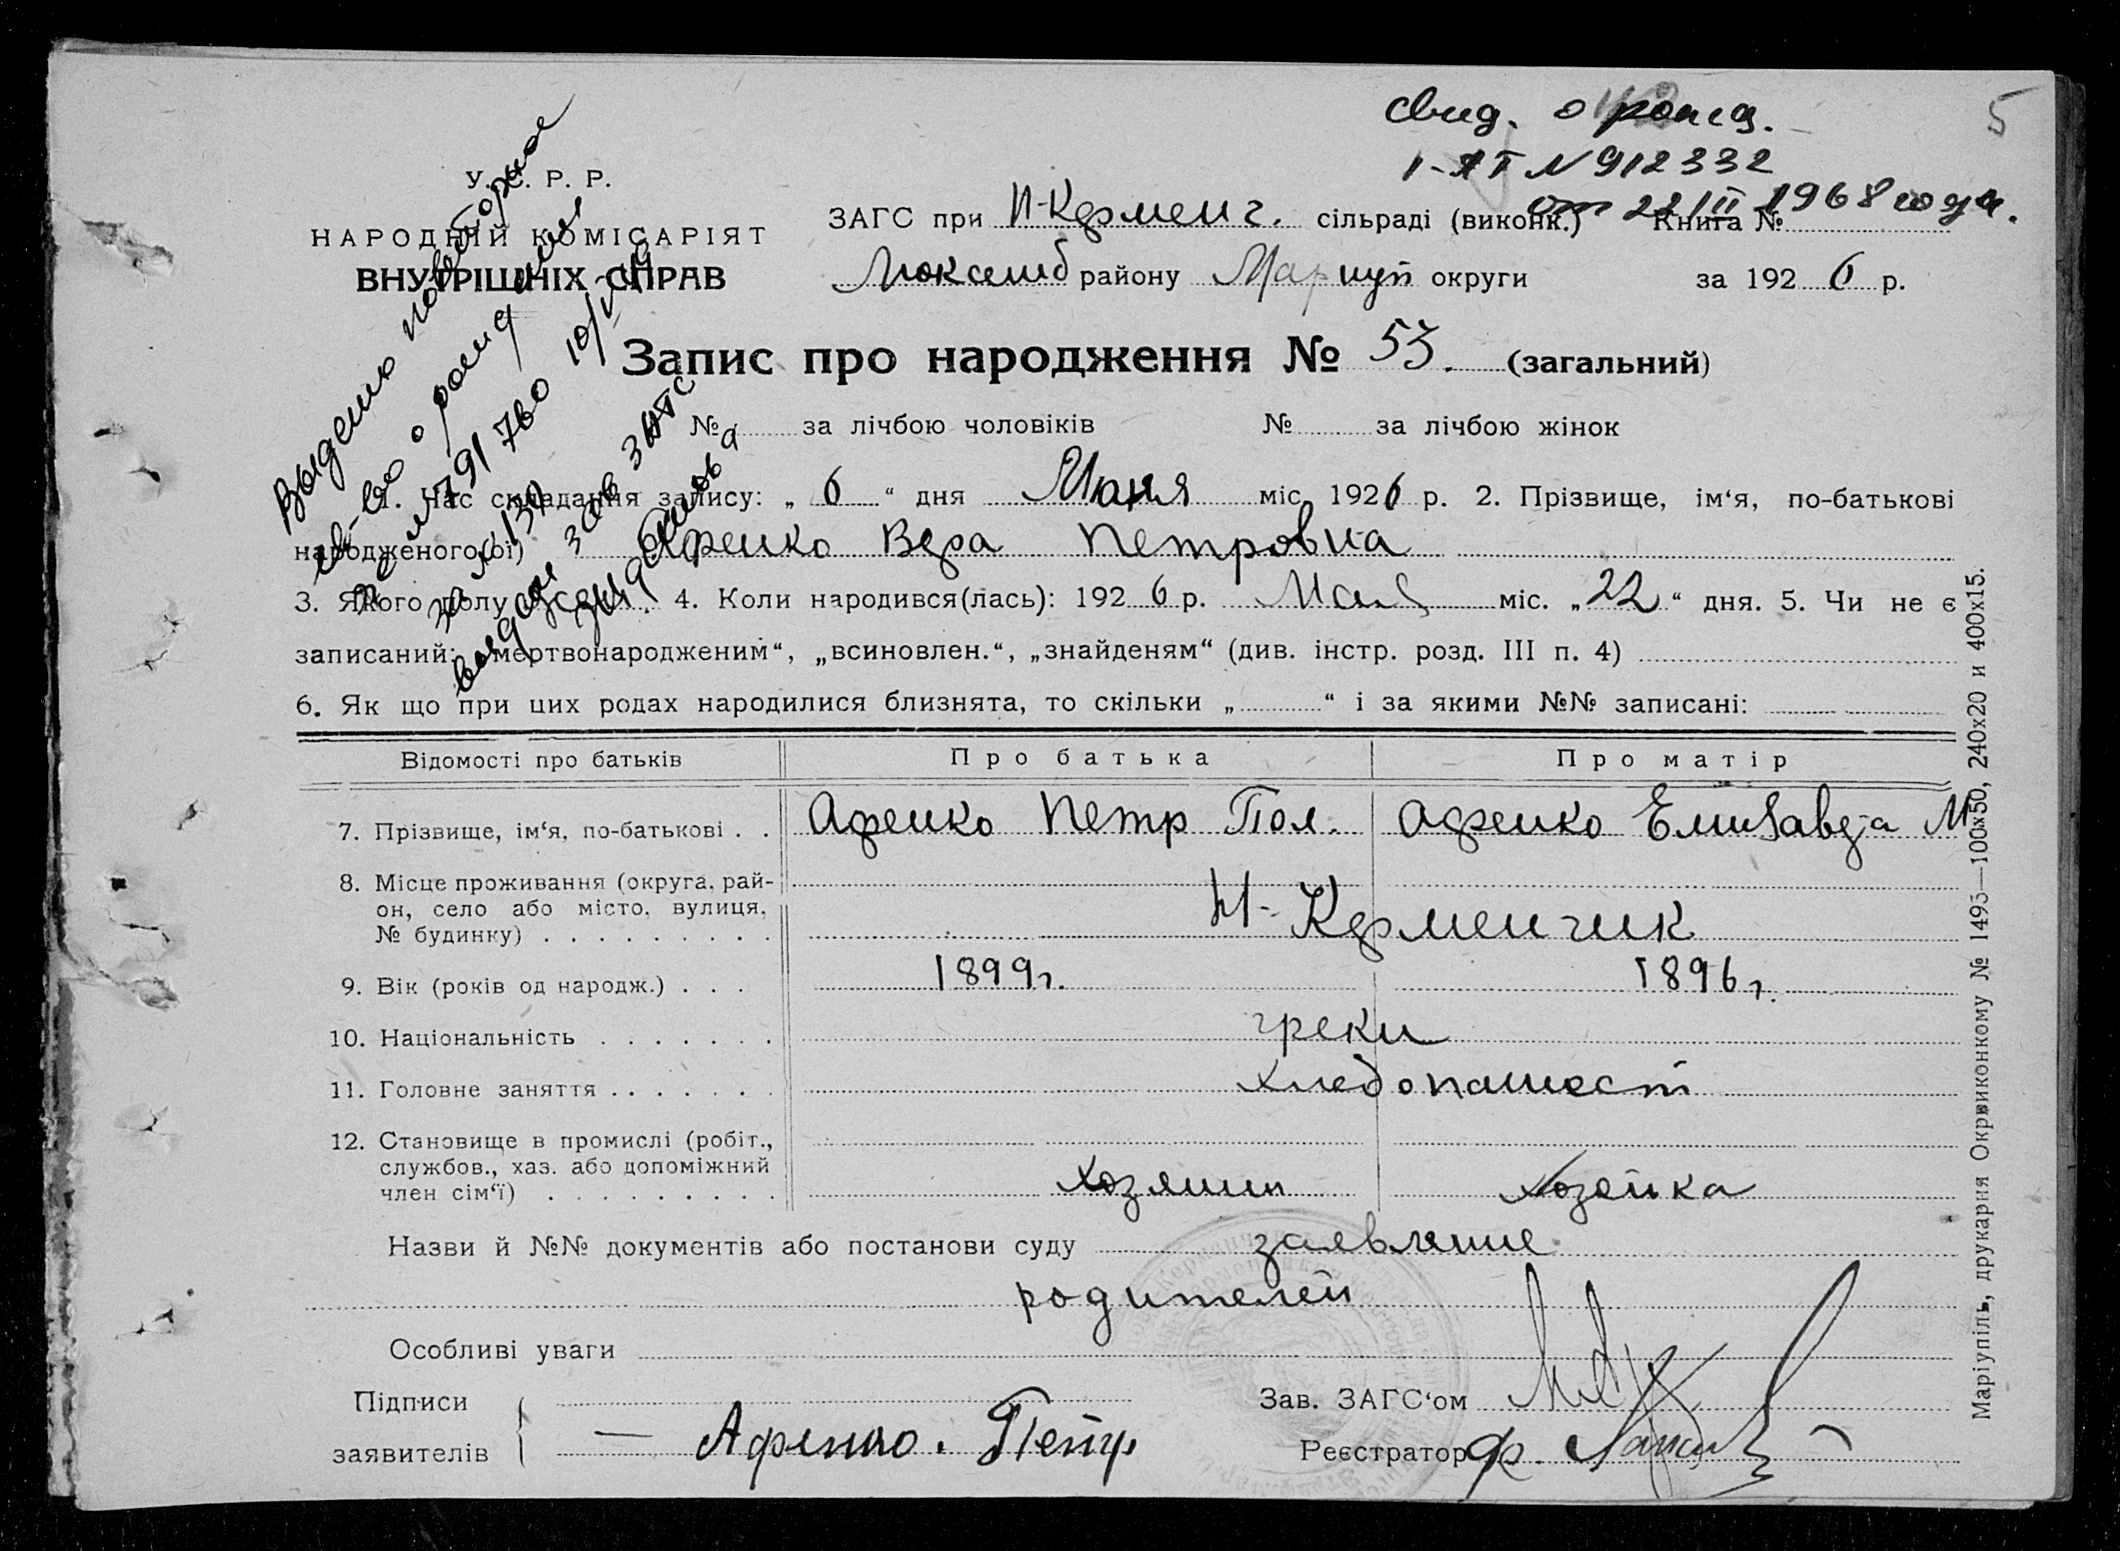 свид. о рожд.
5
I-ЯТ № 912332
от 22/II 1968 года.
У. С. Р. Р.
НАРОДНІЙ КОМІСАРІЯТ
ВНУТРІШНІХ СПРАВ
ЗАГС при Н-Кермен г. сільраді (виконк.) Книга №
Люксемб району Мариуп округи за 1926 р.
Выдано повторное
св-во о рождении
791760 10/
Запис про народження № 53. (загальний)
№ за лічбою чоловіків № за лічбою жінок
1. Час складання запису: „ 6 “ дня Июня міс. 1926 р. 2. Прізвище, ім‘я, по-батькові
народженого(ої) Афенко Вера Петровна
3. Якого полу женск. 4. Коли народився(лась): 1926 р. Мая міс. „22“ дня. 5. Чи не є
записаний: „мертвонародженим“, „всиновлен.“, „знайденям“ (див. інстр. розд. III п. 4)
6. Як що при цих родах народилися близнята, то скільки „ “ і за якими №№ записані:
Відомості про батьків Про батька Про матір
7. Прізвище, ім‘я, по-батькові . . Афенко Петр Пол. Афенко Елизавета М
8. Місце проживання (округа, рай-
он, село або місто, вулиця,
№ будинку) . . . . . . . . . Н-Керменчик
9. Вік (років од народж.) . . . 1899г. 1896г.
10. Національність . . . . . . . греки
11. Головне заняття . . . . . . . хлебопашест
12. Становище в промислі (робіт.,
службов., хаз. або допоміжний
член сім‘ї) . . . . . . . . . хозяин хозяйка
Назви й №№ документів або постанови суду заявление
родителей
Особливі уваги
Підписи
заявителів — Афенко. Петр
Зав. ЗАГС‘ом
Реєстратор
Маріупіль, друкарня Окрвиконкому № 1493—100х50, 240х20 и 400х15.